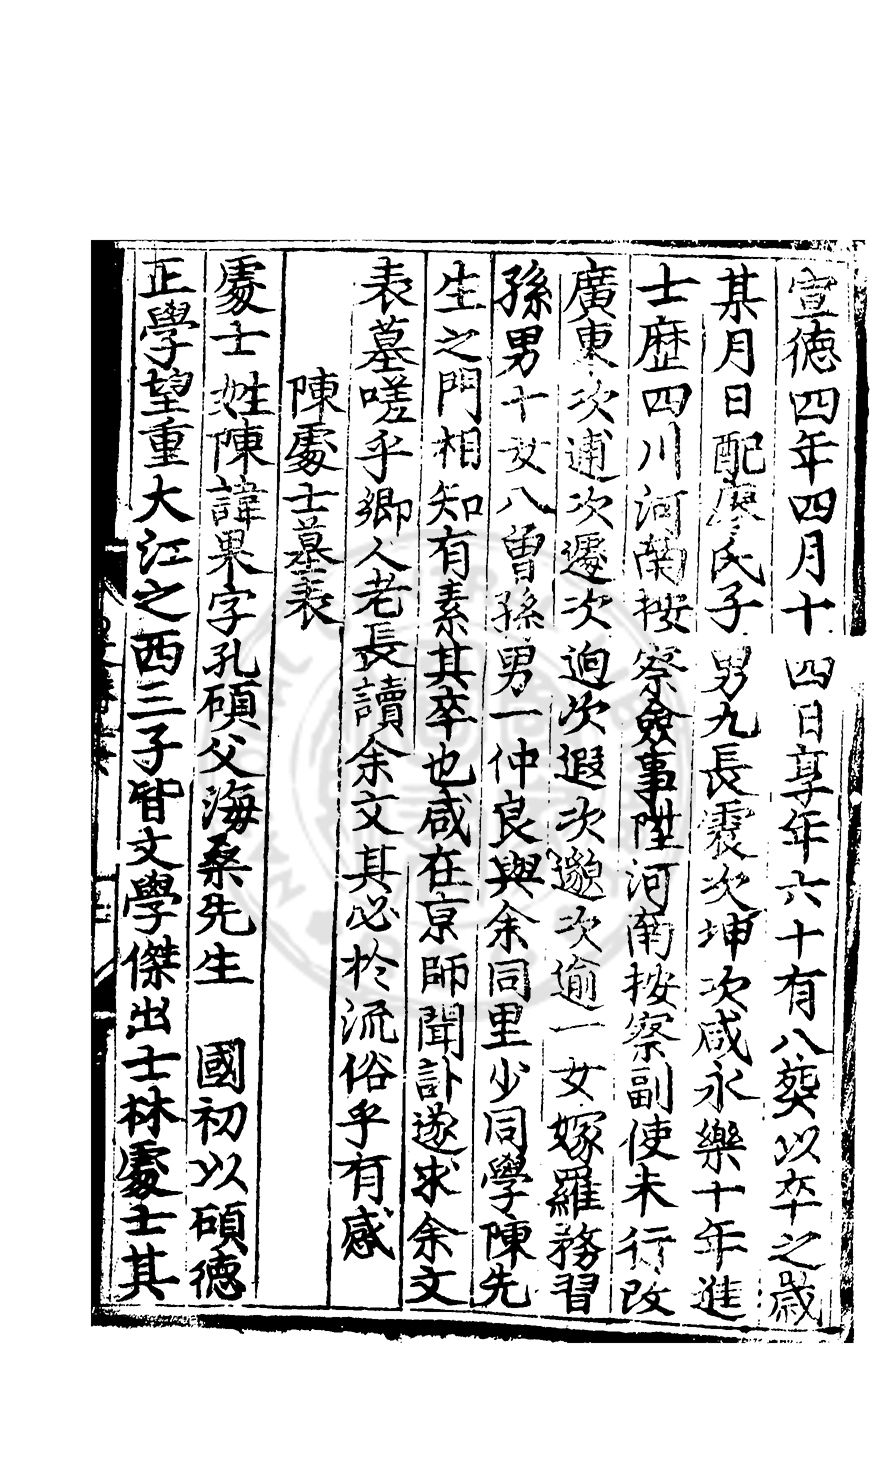 宣德四年四月十四日享年六十有八葬以卒之歲
某月日配廖氏子男九長震次坤次咸永樂十年進
士歷四川河南按察僉事陞河南按察副使未行改
廣東次逋次遷次逈次遐次邈次逾一女嫁羅務習
孫男十女八曾孫男一仲良與余同里少同學陳先
生之門相知有素其卒也咸在京師聞訃遂求余文
表墓嗟乎鄉人老長讀余文其必於流俗乎有感
陳處士墓表
處士姓陳諱杲字孔碩父海桑先生　國初以碩德
正學望重大江之西三子皆文學傑出士林處士其